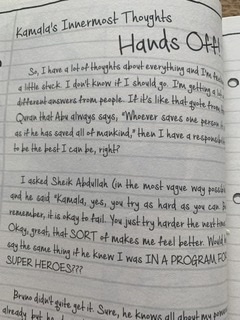 Kamala's Innermost Thoughts
Hands Off!
So, I have a lot of thoughts about everything and I'm
a little stuck. I don't know if I should go. I'm getting a
different answers from people. If it's like that quote from
Quran that Abu always says, "Whoever saves one person
as if he has saved all of mankind," then I have a responsi
to be the best I can be, right?
I asked Sheik Abdullah (in the most vague way possib
and he said "Kamala, yes, you try as hard as you can. B
remember, it is okay to fail. You just try harder the next
Okay, great, that SORT of makes me feel better. Would
say the same thing if he knew I was IN A PROGRAM FOR
SUPER HEROES???
Bruno didn't quite get it. Sure, he knows all about my
already but he